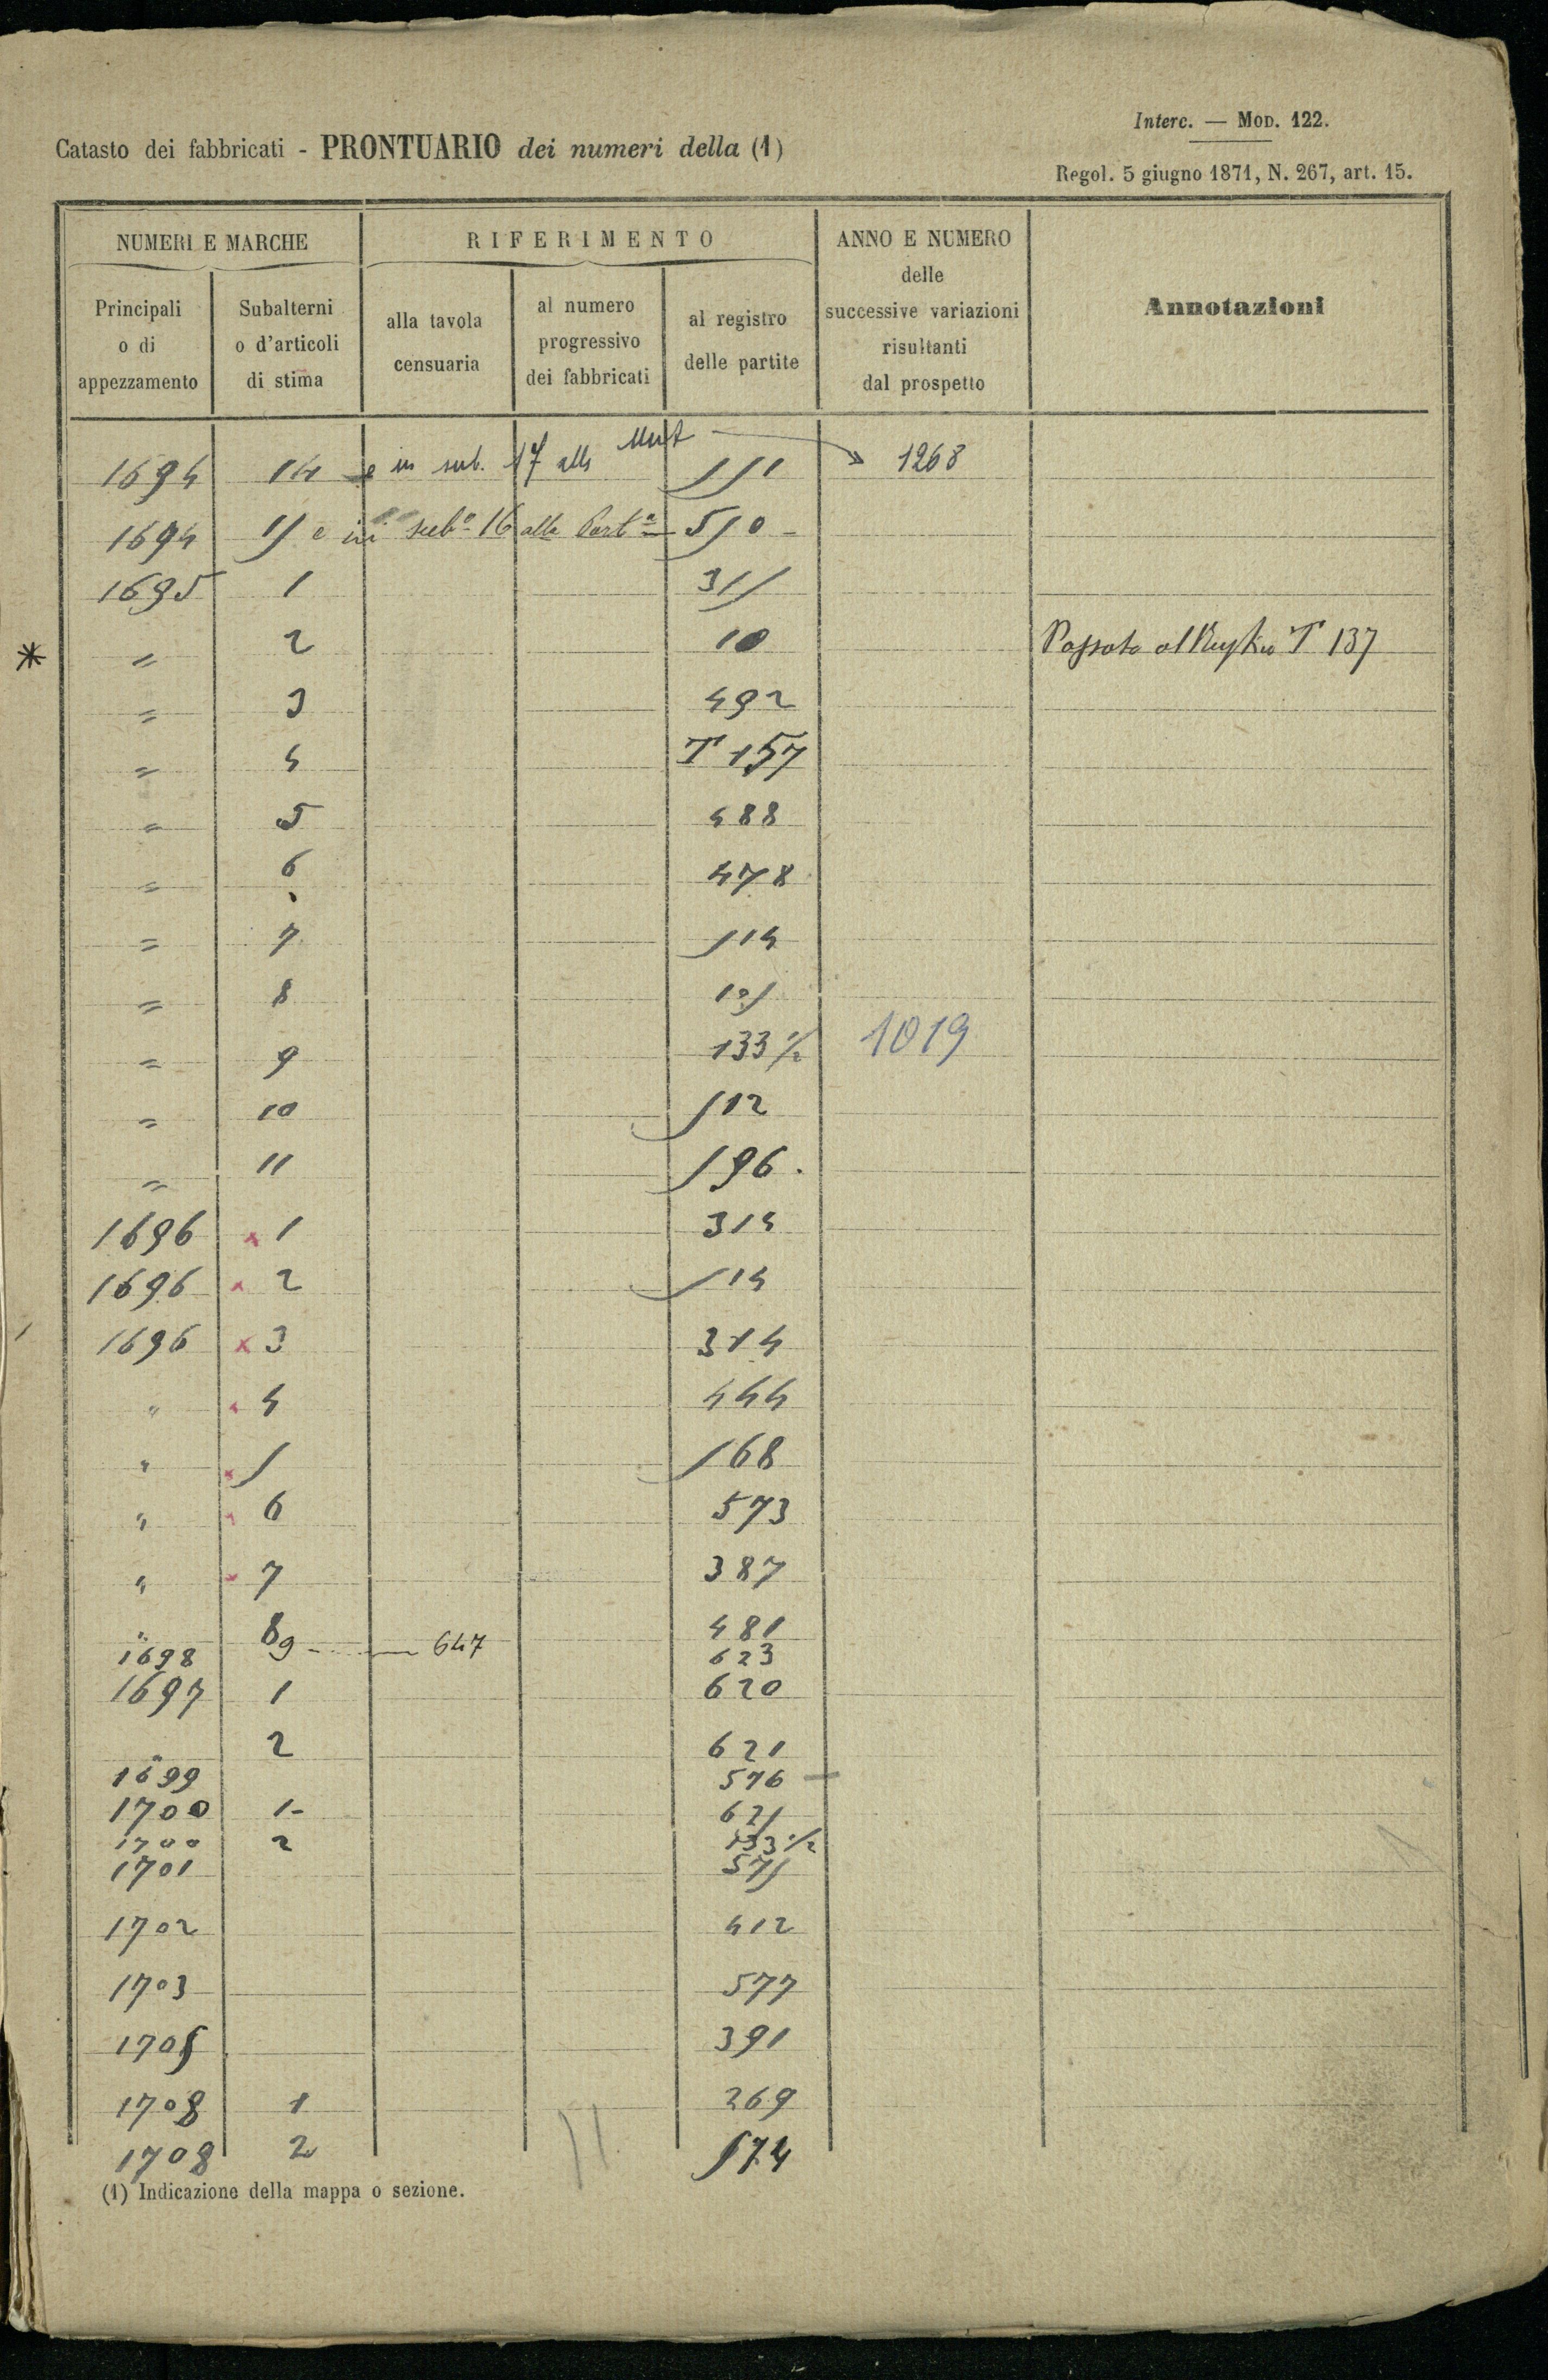 Interc. — Mod. 122.
Catasto dei fabbricati - PRONTUARIO dei numeri della (1)
Regol. 5 giugno 1871, N. 267, art. 15.
NUMERI E MARCHE RIFERIMENTO ANNO E NUMERO
delle
successive variazioni
risultanti
dal prospetto
Annotazioni
Principali
o di
appezzamento
Subalterni
o d'articoli
di stima
alla tavola
censuaria
al numero
progressivo
dei fabbricati
al registro
delle partite
1694 14 e in sub. 17 alla 1268
1694 15 e in sub.º 16 alla Part.ª 510
1695 1 315
* " 2 10 Passato al Rustico T 137
" 3 492
" 4 T 157
" 5 488
" 6 478
" 7 514
" 8 105
" 9 133 1/2 1019
" 10 512
" 11 596.
1696 x 1 314
1696 x 2 514
1696 x 3 314
" x 4 444
" x 5 568
" x 6 573
" x 7 387
" 8 481
1698 9 647 623
1697 1 620
" 2 621
1699 576
1700 1 625
1700 2 133 1/2
1701 575
1702 412
1703 577
1705 391
1708 1 269
1708 2 574
(1) Indicazione della mappa o sezione.